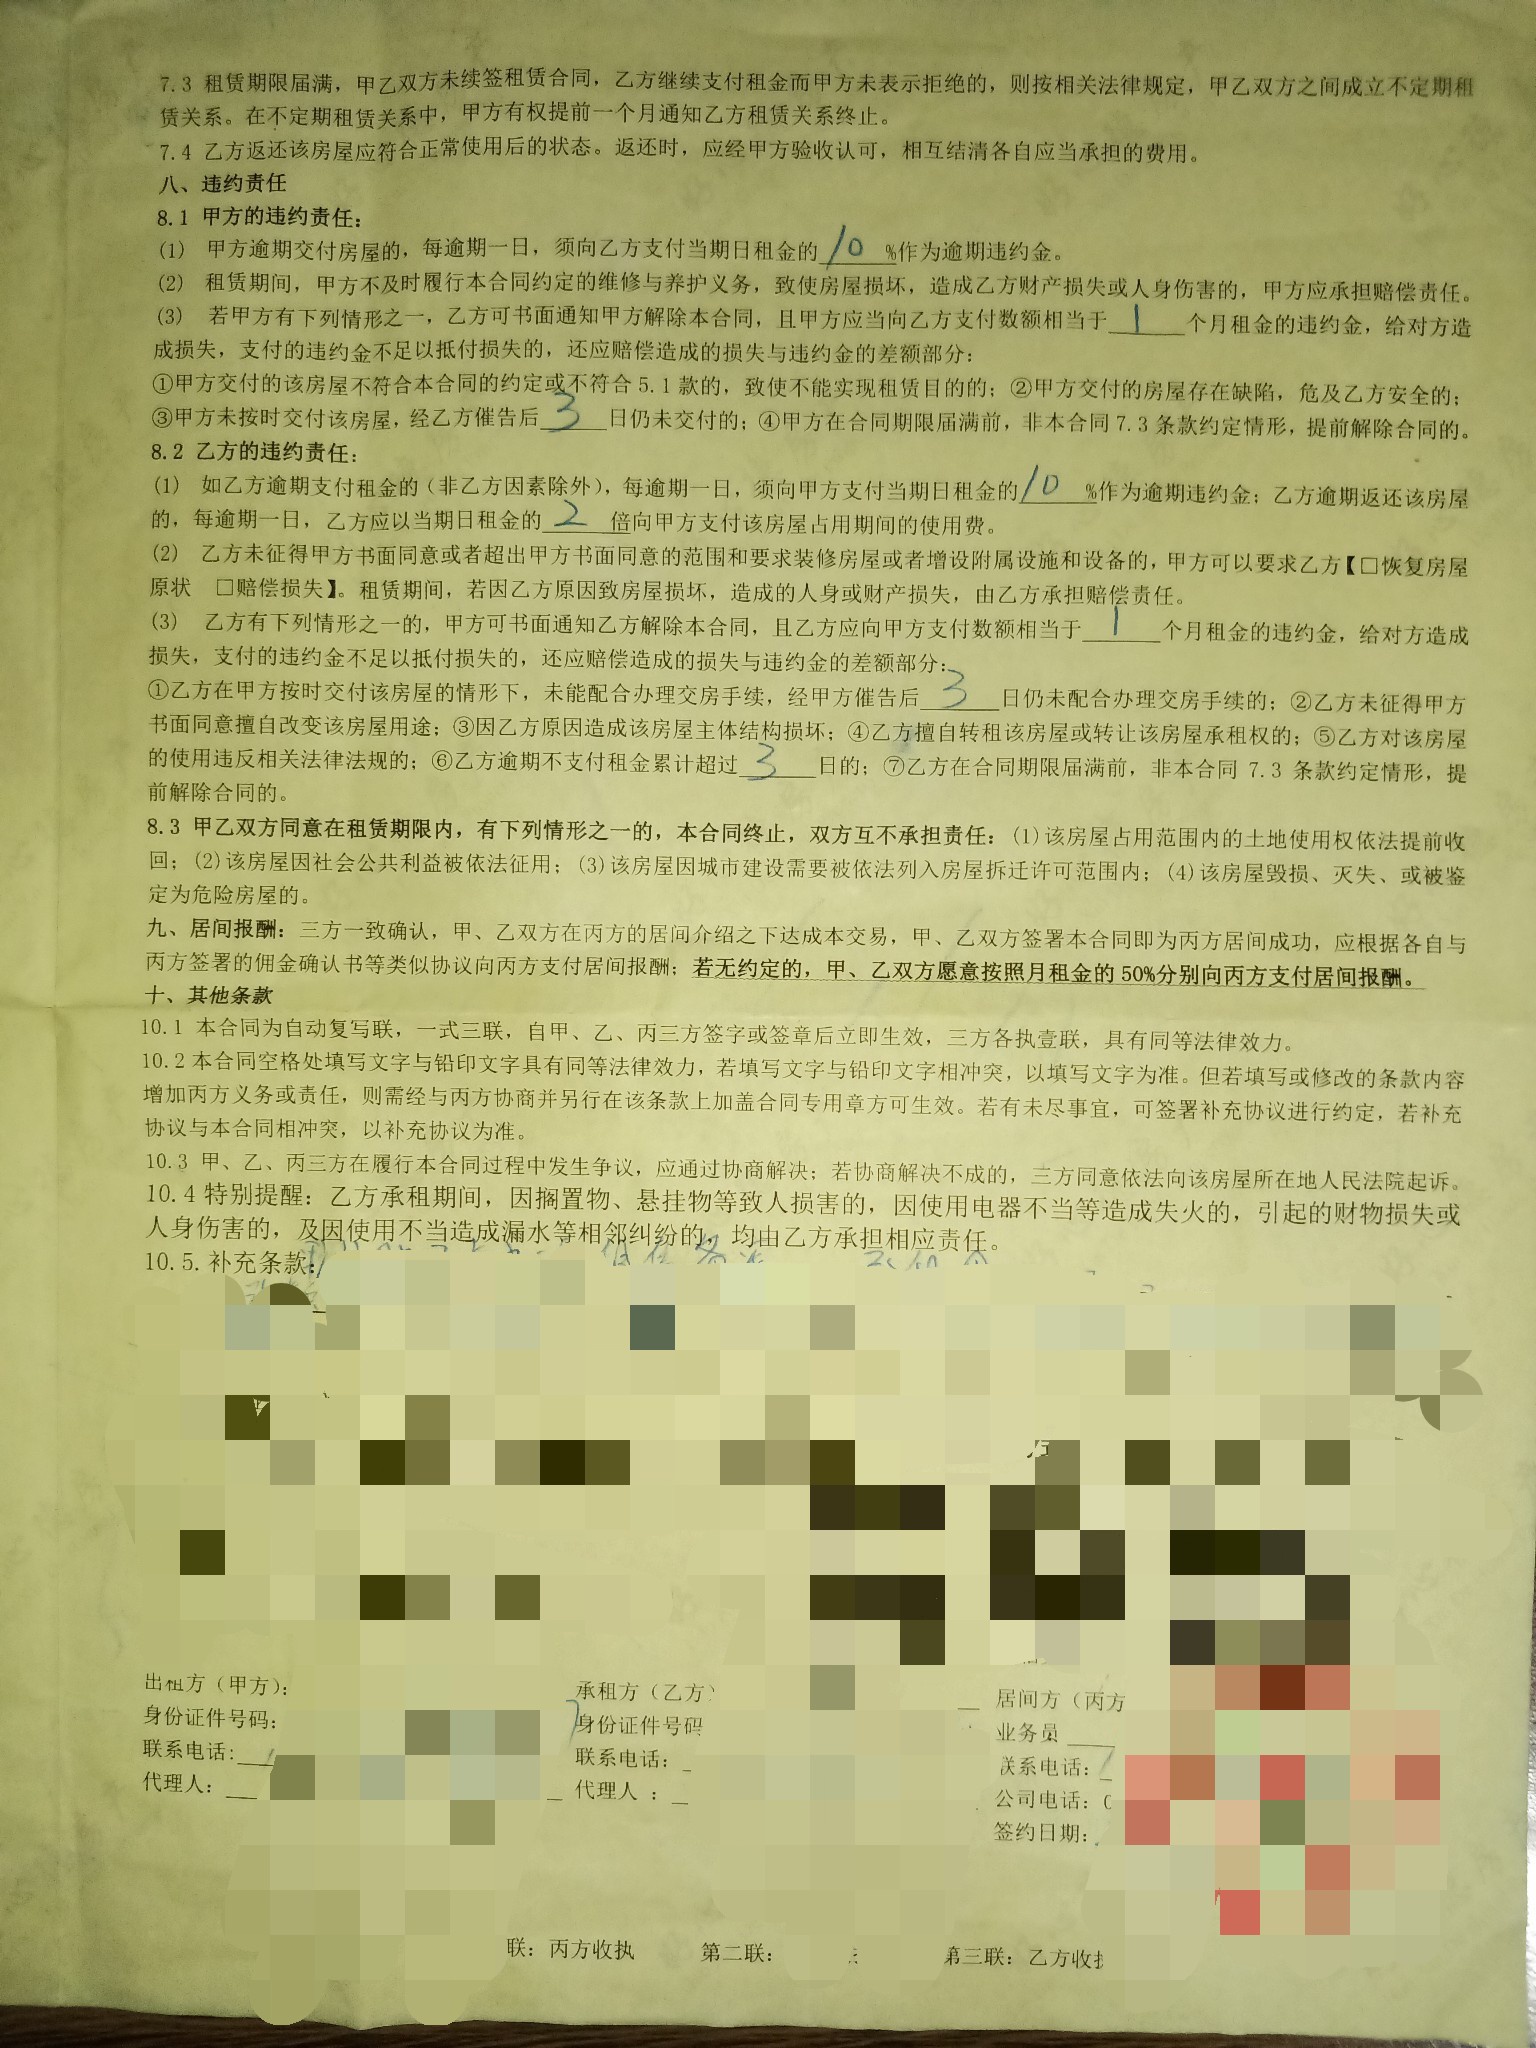 7.3 租赁期限届满，甲乙双方未续签租赁合同，乙方继续支付租金而甲方未表示拒绝的，则按相关法律规定，甲乙双方之间成立不定期租
赁关系。在不定期租赁关系中，甲方有权提前一个月通知乙方租赁关系终止。
7.4 乙方返还该房屋应符合正常使用后的状态。返还时，应经甲方验收认可，相互结清各自应当承担的费用。
八、违约责任
8.1 甲方的违约责任：
(1) 甲方逾期交付房屋的，每逾期一日，须向乙方支付当期日租金的 10 %作为逾期违约金。
(2) 租赁期间，甲方不及时履行本合同约定的维修与养护义务，致使房屋损坏，造成乙方财产损失或人身伤害的，甲方应承担赔偿责任。
(3) 若甲方有下列情形之一，乙方可书面通知甲方解除本合同，且甲方应当向乙方支付数额相当于 1 个月租金的违约金，给对方造
成损失，支付的违约金不足以抵付损失的，还应赔偿造成的损失与违约金的差额部分：
①甲方交付的该房屋不符合本合同的约定或不符合 5.1 款的，致使不能实现租赁目的的；②甲方交付的房屋存在缺陷，危及乙方安全的；
③甲方未按时交付该房屋，经乙方催告后 3 日仍未交付的；④甲方在合同期限届满前，非本合同 7.3 条款约定情形，提前解除合同的。
8.2 乙方的违约责任：
(1) 如乙方逾期支付租金的（非乙方因素除外），每逾期一日，须向甲方支付当期日租金的 10 %作为逾期违约金；乙方逾期返还该房屋
的，每逾期一日，乙方应以当期日租金的 2 倍向甲方支付该房屋占用期间的使用费。
(2) 乙方未征得甲方书面同意或者超出甲方书面同意的范围和要求装修房屋或者增设附属设施和设备的，甲方可以要求乙方【□恢复房屋
原状 □赔偿损失】。租赁期间，若因乙方原因致房屋损坏，造成的人身或财产损失，由乙方承担赔偿责任。
(3) 乙方有下列情形之一的，甲方可书面通知乙方解除本合同，且乙方应向甲方支付数额相当于 1 个月租金的违约金，给对方造成
损失，支付的违约金不足以抵付损失的，还应赔偿造成的损失与违约金的差额部分：
①乙方在甲方按时交付该房屋的情形下，未能配合办理交房手续，经甲方催告后 3 日仍未配合办理交房手续的；②乙方未征得甲方
书面同意擅自改变该房屋用途；③因乙方原因造成该房屋主体结构损坏；④乙方擅自转租该房屋或转让该房屋承租权的；⑤乙方对该房屋
的使用违反相关法律法规的；⑥乙方逾期不支付租金累计超过 3 日的；⑦乙方在合同期限届满前，非本合同 7.3 条款约定情形，提
前解除合同的。
8.3 甲乙双方同意在租赁期限内，有下列情形之一的，本合同终止，双方互不承担责任：(1)该房屋占用范围内的土地使用权依法提前收
回；(2)该房屋因社会公共利益被依法征用；(3)该房屋因城市建设需要被依法列入房屋拆迁许可范围内；(4)该房屋毁损、灭失、或被鉴
定为危险房屋的。
九、居间报酬：三方一致确认，甲、乙双方在丙方的居间介绍之下达成本交易，甲、乙双方签署本合同即为丙方居间成功，应根据各自与
丙方签署的佣金确认书等类似协议向丙方支付居间报酬；若无约定的，甲、乙双方愿意按照月租金的 50%分别向丙方支付居间报酬。
十、其他条款
10.1 本合同为自动复写联，一式三联，自甲、乙、丙三方签字或签章后立即生效，三方各执壹联，具有同等法律效力。
10.2 本合同空格处填写文字与铅印文字具有同等法律效力，若填写文字与铅印文字相冲突，以填写文字为准。但若填写或修改的条款内容
增加丙方义务或责任，则需经与丙方协商并另行在该条款上加盖合同专用章方可生效。若有未尽事宜，可签署补充协议进行约定，若补充
协议与本合同相冲突，以补充协议为准。
10.3 甲、乙、丙三方在履行本合同过程中发生争议，应通过协商解决；若协商解决不成的，三方同意依法向该房屋所在地人民法院起诉。
10.4 特别提醒：乙方承租期间，因搁置物、悬挂物等致人损害的，因使用电器不当等造成失火的，引起的财物损失或
人身伤害的，及因使用不当造成漏水等相邻纠纷的，均由乙方承担相应责任。
10.5.补充条款：
出租方（甲方）： 承租方（乙方） 居间方（丙方
身份证件号码： 身份证件号码 业务员
联系电话： 联系电话： 联系电话：
代理人： 代理人 ： 公司电话：0
签约日期：
联：丙方收执 第二联： 第三联：乙方收执